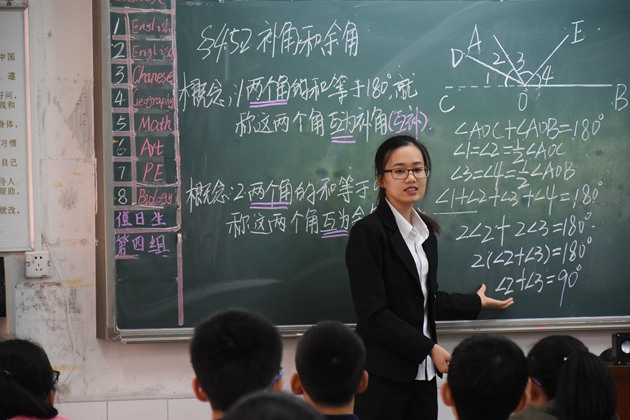 1 English
2 English
3 Chinese
4 Geography
5 Math
6 Art
7 PE
8 Biology
值日生
第四组
§4.5.2 补角和余角
概念:1)两个角的和等于180°,就
称这两个角互为补角(互补).
概念:2.两个角的和等于
称这两个角互为
D A E
1 2 3 4
C O B
∠AOC+∠AOB=180°
∠1=∠2=½∠AOC
∠3=∠4=½∠AOB
∠1+∠2+∠3+∠4=180°
2∠2+2∠3=180°
2(∠2+∠3)=180°
∠2+∠3=90°